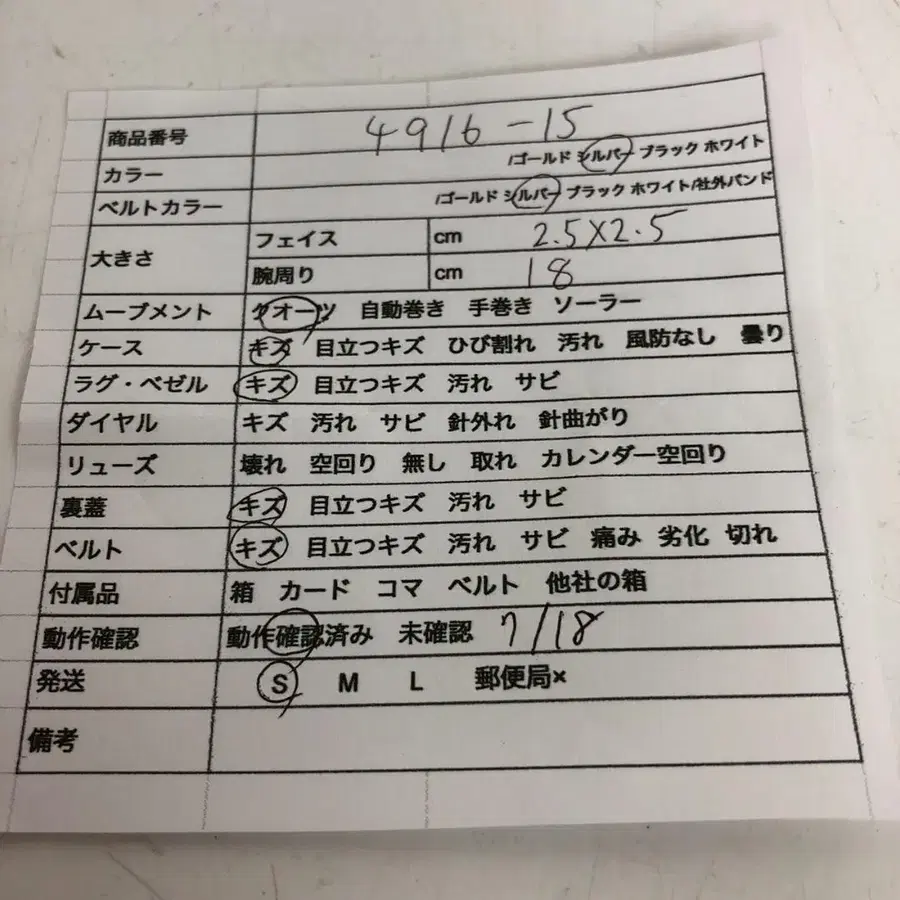 商品番号 4916-15
カラー /ゴールド シルバー ブラック ホワイト
ベルトカラー /ゴールド シルバー ブラック ホワイト/社外バンド
大きさ フェイス cm 2.5×2.5
腕周り cm 18
ムーブメント クオーツ 自動巻き 手巻き ソーラー
ケース キズ 目立つキズ ひび割れ 汚れ 風防なし 曇り
ラグ・ベゼル キズ 目立つキズ 汚れ サビ
ダイヤル キズ 汚れ サビ 針外れ 針曲がり
リューズ 壊れ 空回り 無し 取れ カレンダー空回り
裏蓋 キズ 目立つキズ 汚れ サビ
ベルト キズ 目立つキズ 汚れ サビ 痛み 劣化 切れ
付属品 箱 カード コマ ベルト 他社の箱
動作確認 動作確認済み 未確認 7/18
発送 S M L 郵便局×
備考